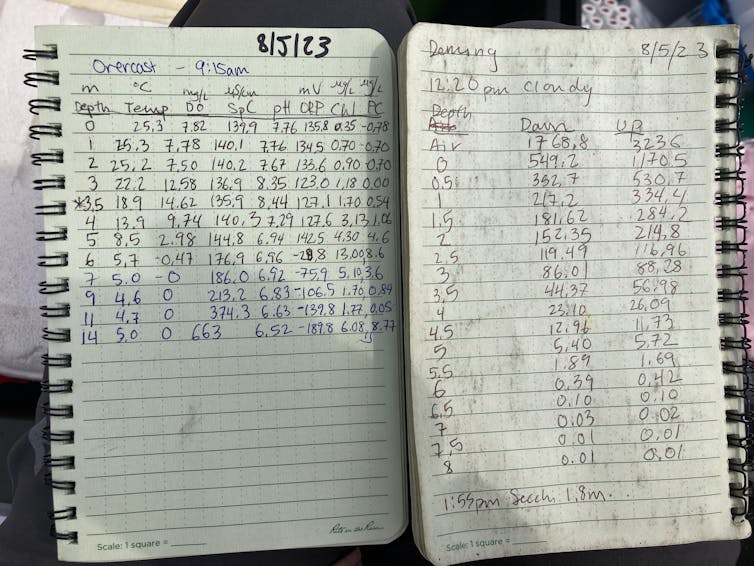 8/5/23
Overcast - 9:15am
m °C mg/L µS/cm mV µg/L µg/L
Depth Temp DO SpC pH ORP Chl PC
0 25,3 7.82 139,9 7.76 135.8 0.35 -0.78
1 25,3 7,78 140,1 7.76 134,5 0.70 -0.70
2 25,2 7,50 140.2 7.67 133,6 0,90 -0,70
3 22.2 12.58 136,9 8.35 123,0 1,18 0,00
*3,5 18,9 14.62 135,9 8,44 127,1 1.70 0,54
4 13.9 9,74 140,3 7,29 127,6 3,13 1.06
5 8,5 2.98 144,8 6.94 142,5 4.30 4.6
6 5,7 -0.47 176,9 6,96 13,00 8.6
7 5.0 -0 186.0 6,92 -75,9 5,10 3.6
9 4,6 0 213,2 6.83 -106,5 1.70 0.89
11 4,7 0 374,3 6.63 -139,8 1.77 0,05
14 5,0 0 663 6.52 -189,8 6.08 8.77
Rite in the Rain
Scale: 1 square =
Deming 8/5/23
12:20pm cloudy
Depth
Down UP
Air 1768,8 3236
0 549,2 1170.5
0.5 352,7 530.7
1 217,2 334,4
1,5 181,62 284,2
2 152,35 214,8
2,5 119,49 116,96
3 86,01 88,28
3,5 44,37 56,98
4 23,40 26,09
4,5 12,96 11,73
5 5,40 5,72
5,5 1,89 1,69
6 0,39 0,42
6,5 0,10 0,10
7 0,03 0,02
7,5 0,01 0,01
8 0.01 0,01
1:55pm Secchi 1.8m.
Scale: 1 square =